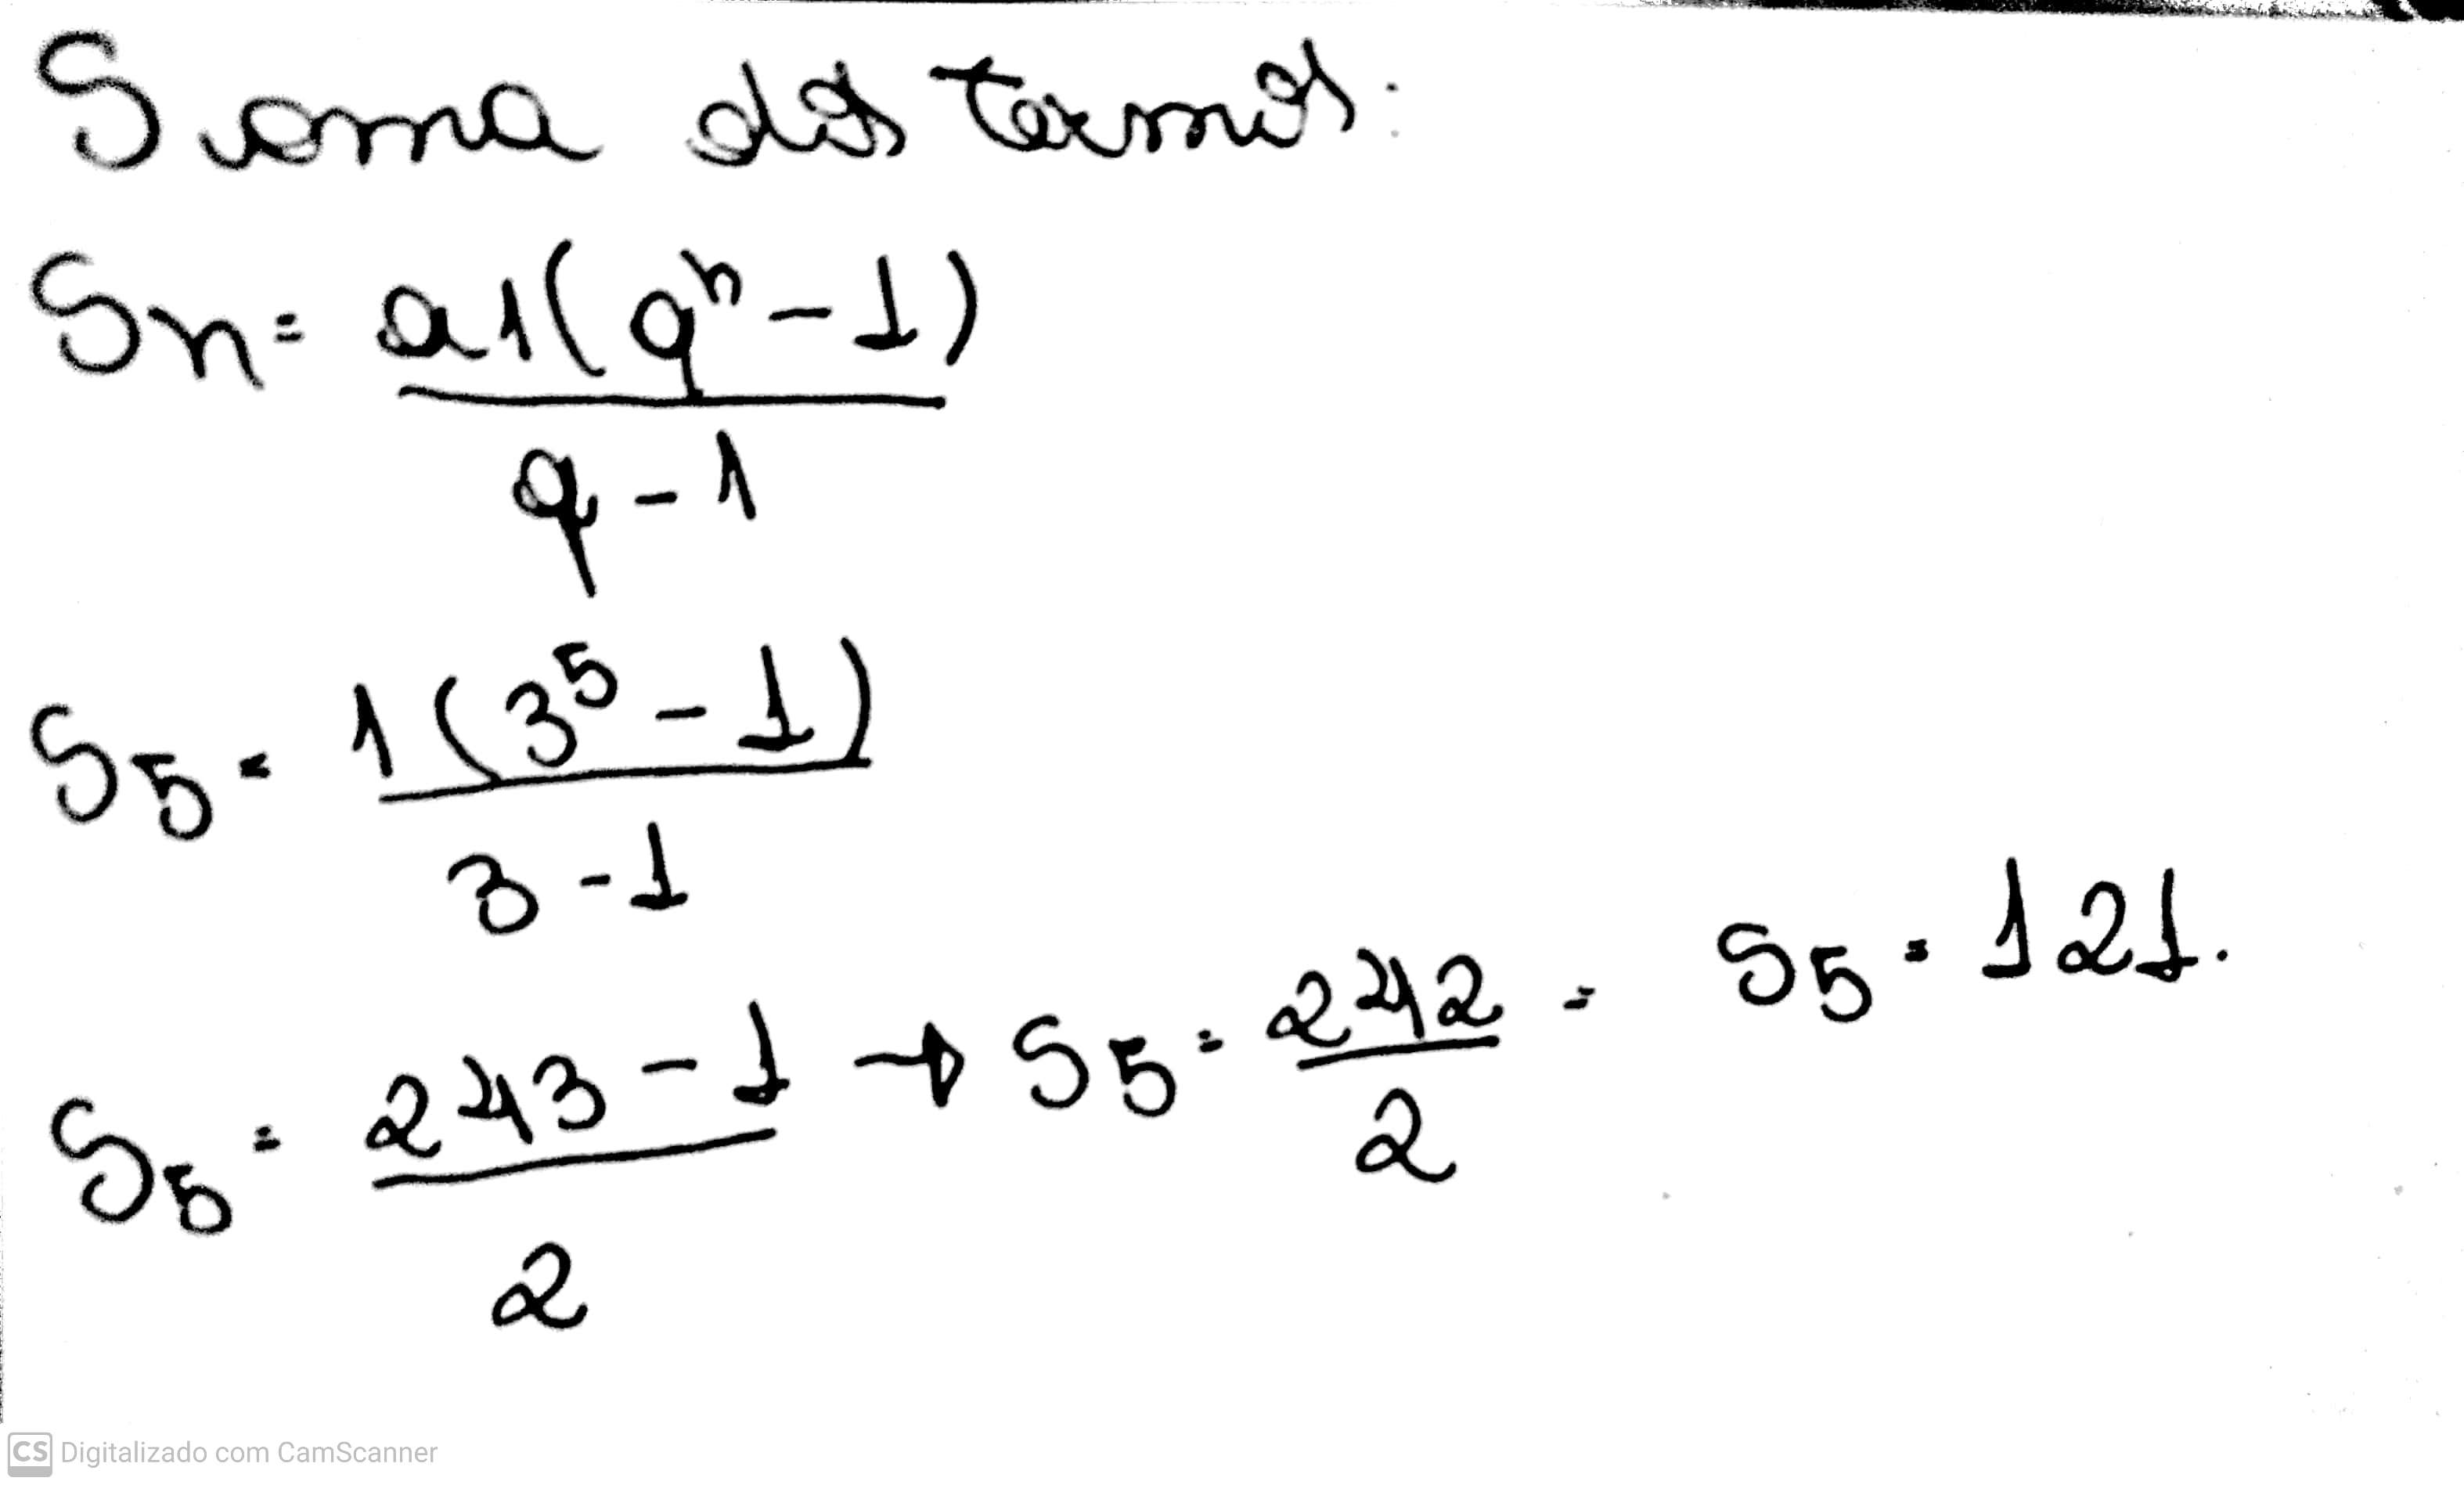 Soma dos termos:
Sn = a1(q^n - 1)
q - 1
S5 = 1(3^5 - 1)
3 - 1
S5 = 243 - 1 → S5 = 242 = S5 = 121.
2 2
CS Digitalizado com CamScanner